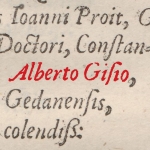 s Ioanni Proit, G
Doctori, Constan-
Alberto Gisio,
Gedanensis,
colendiss: